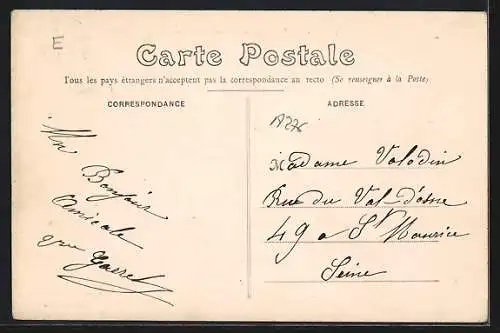 E
Carte Postale
Tous les pays étrangers n'acceptent pas la correspondance au recto (Se renseigner à la Poste)
CORRESPONDANCE
ADRESSE
Un
Bonjour
Amicale
Madame Valodin
Rue du Val-d'osne
49 a St Maurice
Seine